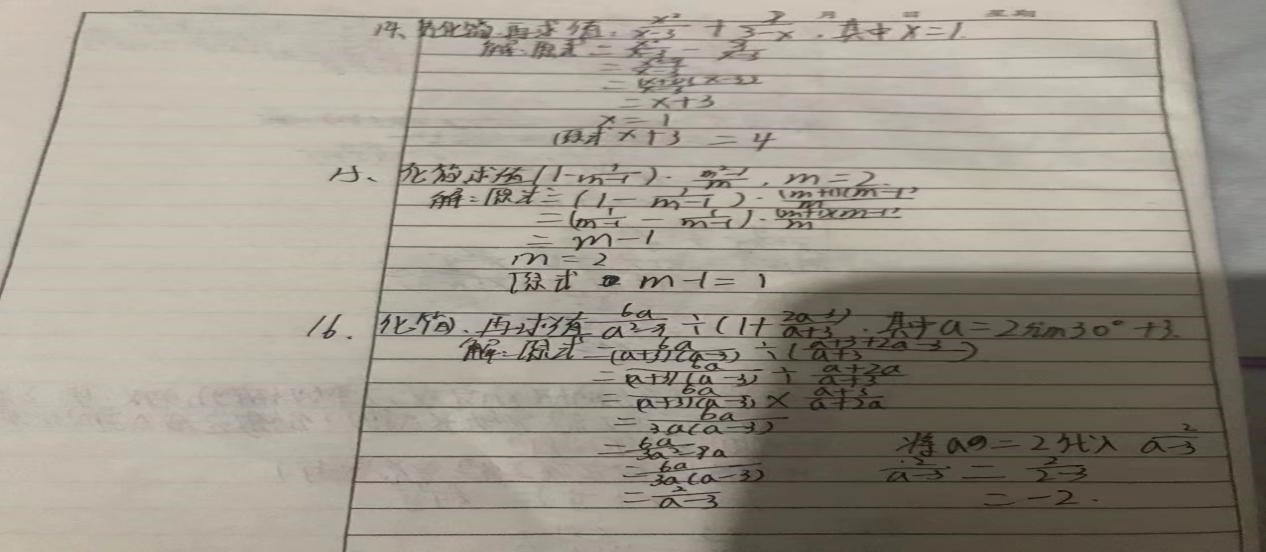 月 日 星期
14、先化简,再求值. x²/(x-3) + 9/(3-x) . 其中 x=1.
解:原式 = x²/(x-3) - 9/(x-3)
= (x²-9)/(x-3)
= (x+3)(x-3)/(x-3)
= x+3
x = 1
原式 x+3 = 4
15、化简求值 (1 - 1/(m-1)) · (m²-1)/m , m=2.
解:原式 = (1 - 1/(m-1)) · (m+1)(m-1)/m
= · (m+1)(m-1)/m
= m-1
m = 2
原式 = m-1 = 1
16. 化简、再求值 6a/(a²-9) ÷ (1 + (2a-3)/(a+3)) . 其中 a=2sin30°+3.
解:原式 = 6a/((a+3)(a-3)) ÷ ((a+3+2a-3)/(a+3))
= 6a/((a+3)(a-3)) ÷ (a+2a)/(a+3)
= 6a/((a+3)(a-3)) × (a+3)/(a+2a)
= 6a/(3a(a-3))
= 6a/
= 6a/(3a(a-3))
= 2/(a-3)
将 a = 2 代入 2/(a-3)
2/(a-3) = 2/(2-3)
= -2.